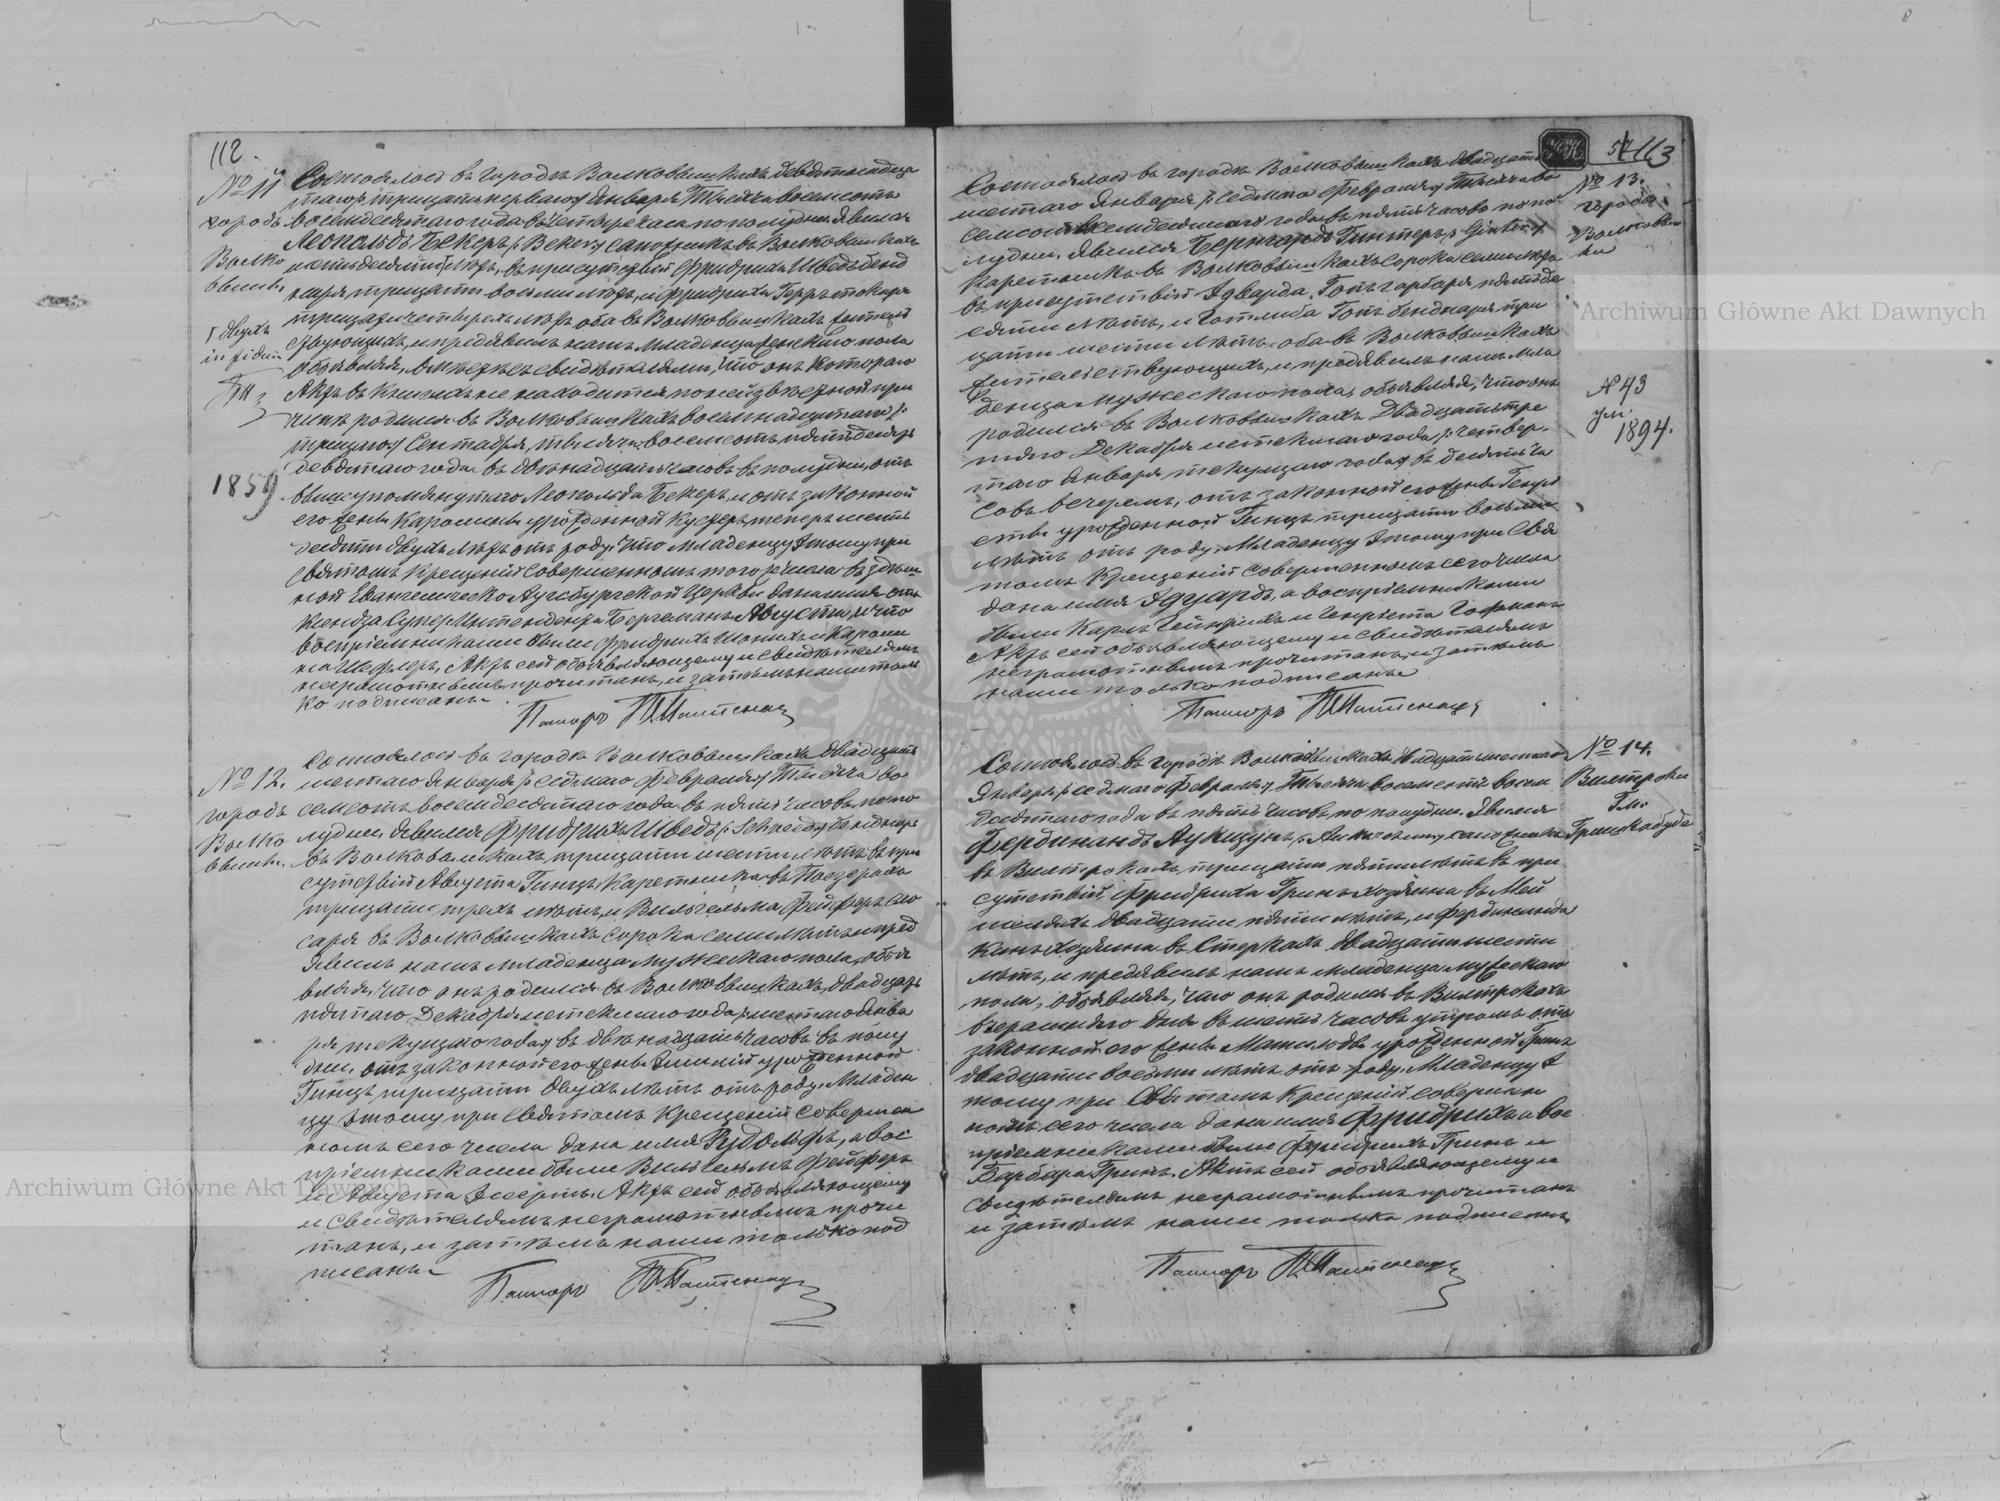 112.
№ 11
городъ
Волко
вышки
двухъ
in fidem
1859
Состоялось въ городѣ Волковышкахъ девятнадца
таго /: тридцать перваго :/ Января Тысяча восемьсотъ
восемдесятаго года въ четыре часа по полудни. Явился
Леопольдъ Бекеръ /: Beker :/ сапожникъ въ Волковышкахъ
шестьдесяти лѣтъ, въ присутствіи Фридриха Шведъ бенд
наря, тридцати восьми лѣтъ, и Фридриха Герръ токаря
тридцати четырехъ лѣтъ, оба въ Волковышкахъ жительст
вующихъ, и предъявилъ намъ младенца женскаго пола
объявляя, вмѣстѣ съ свидѣтелями, что онъ котораго
Актъ въ книгахъ не находится по неизвѣстной при
чинѣ родился въ Волковышкахъ восемнадцатаго /:
тридцатаго :/ Сентября, тысяча восемьсотъ пятьдесятъ
девятаго года въ двѣнадцать часовъ въ полудни, отъ
вышеупомянутаго Леопольда Бекеръ, и отъ законной
его жены Каролины урожденной Кусферъ, теперь шесть
десяти двухъ лѣтъ отъ роду. Что младенцу этому при
Святомъ Крещеніи совершенномъ того же числа въ здѣш
ной Евангелическо Аугсбургской Церкви дана имя отъ
Ксендза Супер Интендента Бергеманъ Августа, и что
воспріемниками были Фридрихъ Шонихъ и Кароли
на Шефлеръ. Актъ сей объявляющему и свидѣтелямъ
неграмотнымъ прочитанъ, и затѣмъ нами толь
ко подписанъ.
Пасторъ
№ 12.
городъ
Волко
вышки.
Состоялось въ городѣ Волковышкахъ двадцать
шестаго Января /: седьмаго Февраля :/ Тысяча во
семсотъ восемдесятаго года въ пять часовъ по по
лудни. Явился Фридрихъ Шведъ /: Schweed :/ бенднарь
въ Волковышкахъ, тридцати шести лѣтъ въ при
сутствіи Августа Гинцъ Каретника въ Поезерахъ
тридцати трехъ лѣтъ, и Вильгельма Фейферъ сле
саря въ Волковышкахъ сорока семи лѣтъ и пред
явилъ намъ младенца мужескаго пола, объя
вляя, что онъ родился въ Волковышкахъ, двадцать
пятаго Декабря истекшаго года /: шестаго Янва
ря текущаго года :/ въ двѣнадцать часовъ въ полу
дни, отъ законной его жены Эмиліи урожденной
Гинцъ, тридцати двухъ лѣтъ отъ роду. Младен
цу этому при Святомъ Крещеніи совершен
номъ сего числа дана имя Рудольфъ, а вос
пріемниками были Вильгельмъ Фейферъ
и Августа Эссертъ. Актъ сей объявляющему
и свидѣтелямъ неграмотнымъ прочи
танъ, и затѣмъ нами только под
писанъ
Пасторъ
113
№ 13.
городъ
Волковыш
ки
№ 43
ум.
1894.
Состоялось въ городѣ Волковышкахъ двадцать
шестаго Января /: седьмаго Февраля :/ Тысяча во
семсотъ восемдесятаго года въ пять часовъ по по
лудни. Явился Бернгардъ Гинтеръ /: Ginter :/
каретникъ въ Волковышкахъ сорока семи лѣтъ
въ присутствіи Эдварда Готъ гарбаря пятьде
сяти лѣтъ, и Готлиба Готъ бенднаря три
цати шести лѣтъ оба въ Волковышкахъ
жительствующихъ, и предъявилъ намъ мла
денца мужескаго пола, объявляя, что онъ
родился въ Волковышкахъ двадцать тре
тяго Декабря истекшаго года /: четвер
таго Января текущаго года :/ въ десять ча
совъ вечеромъ, отъ законной его жены Генри
еты урожденной Гинцъ тридцати восьми
лѣтъ отъ роду. Младенцу этому при Свя
томъ Крещеніи совершенномъ сего числа
дана имя Эдуардъ, а воспріемниками
были Карлъ Гейнрихъ и Генріета Гофманъ
Актъ сей объявляющему и свидѣтелямъ
неграмотнымъ прочитанъ, и затѣмъ
нами только подписанъ
Пасторъ
№ 14.
Вистроки
Гм.
Гришкабуде
Состоялось въ городѣ Волковышкахъ двадцать шестаго
Января /: седьмаго Февраля :/ Тысяча восемьсотъ восем
десятаго года въ пять часовъ по полудни. Явился
въ Вистрокахъ, тридцати пяти лѣтъ въ при
сутствіи, Фридриха Гринъ хозяина въ Мей
шеляхъ двадцати пяти лѣтъ, и Фердинанда
Кинъ хозяина въ Стеркахъ двадцати шести
лѣтъ, и предъявилъ намъ младенца мужескаго
пола, объявляя, что онъ родился въ Вистрокахъ
вчерашняго дня въ шесть часовъ утромъ, отъ
законной его жены Матильды урожденной Гринъ
двадцати восьми лѣтъ отъ роду. Младенцу э
тому при Святомъ Крещеніи соверше
номъ сего числа дана имя Фридрихъ а вос
пріемниками были Фридрихъ Гринъ и
Барбара Гринъ. Актъ сей объявляющему и
свидѣтелямъ неграмотнымъ прочитанъ
и затѣмъ нами только подписанъ
Пасторъ
Archiwum Główne Akt Dawnych
Archiwum Główne Akt Dawnych